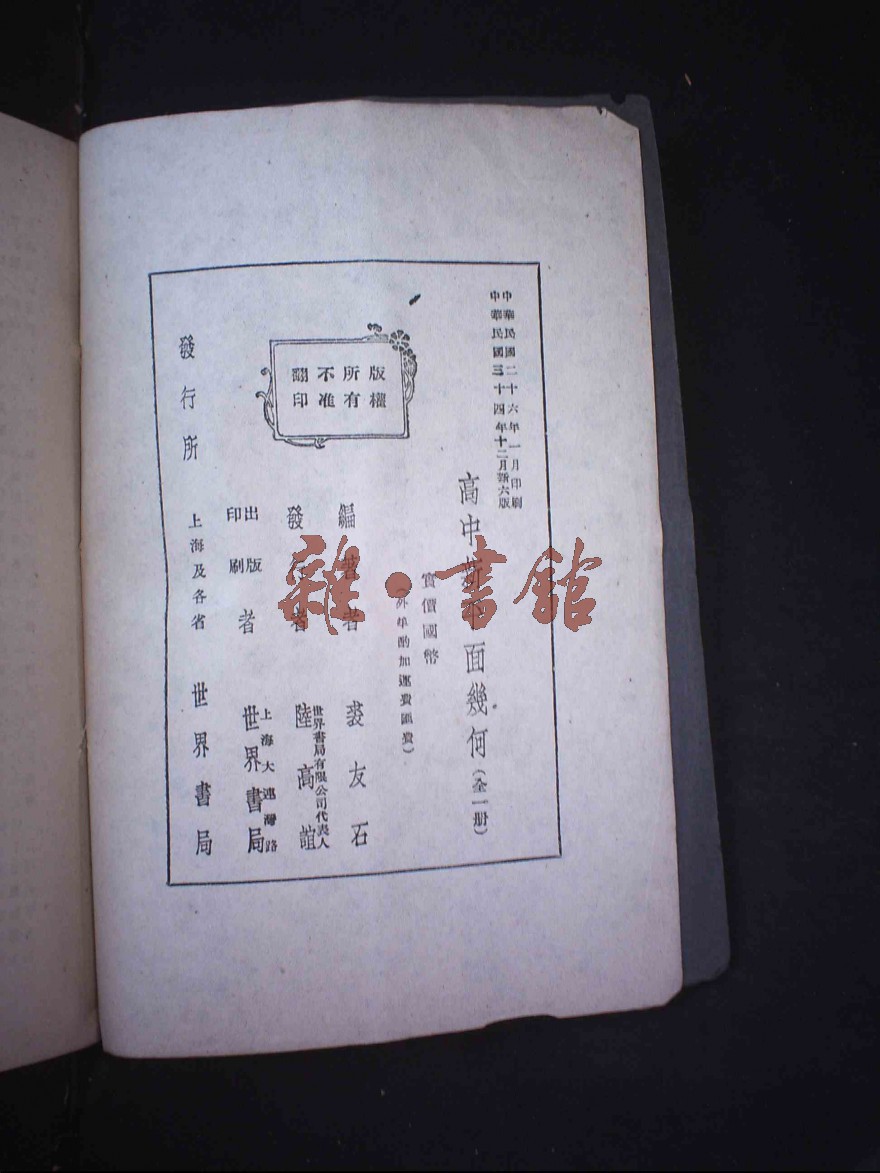 中華民國二十六年一月印刷
中華民國三十四年十二月新六版
高中新平面幾何(全一册)
實價國幣
(外埠酌加運費匯費)
版權
所有
不准
翻印
編著者 裘友石
世界書局有限公司代表人
發行者 陸高誼
上海大連灣路
出版
印刷者 世界書局
發行所 上海及各省 世界書局
雜·書館